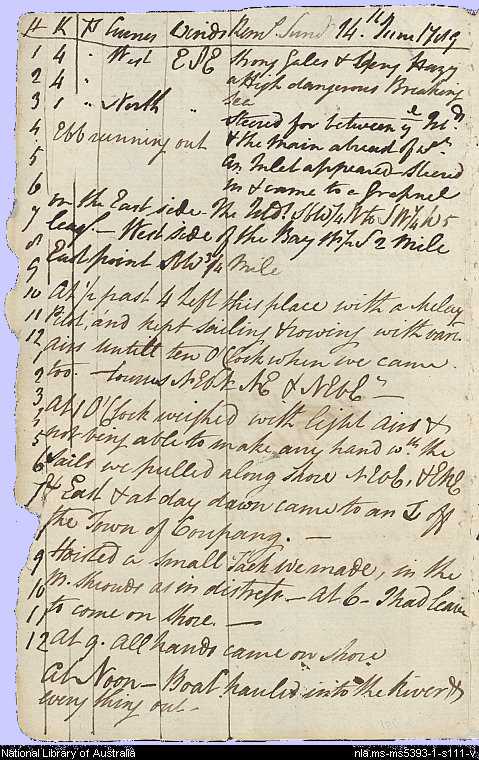 H K F Courses Winds Rem.s Sund. 14.th June 1789
1 4 " West ESE Strong Gales & Very Hazy
2 4 " a High dangerous Breaking
3 1 " North " Sea
Steered for between ye Isl.d
4 Ebb running out & the main ahead of w.ch
5 an Inlet appeared Steered
6 in & came to a Grapnel
7 on the East side. The Isl.d SbW¼W to SW¼W 5
leag.s – West side of the Bay WbS 2 Mile
8 East point SbW¾ Mile
9
10 At ½ past 4 Left this place with a Malay
11 Pilot, and kept sailing & rowing with vari.
12 airs untill ten O'Clock when we came
1 too. – Courses NEbN NE & NEbE
2
3 At 1 O'Clock weighed with light Airs &
5 not being able to make any hand w.th the
6 Sails we pulled along shore NEbE, & ENE
7 & East & at day dawn came to an off
the Town of Coupang. –
9 Hoisted a small Jack we made, in the
10 M. Shrouds as in distress – At 6 – I had leave
11 to come on Shore. –
12 At 9. All hands came on Shore
At Noon – Boat hauled into the River &
every thing out –
National Library of Australia
nla.ms-ms5393-1-s111-v